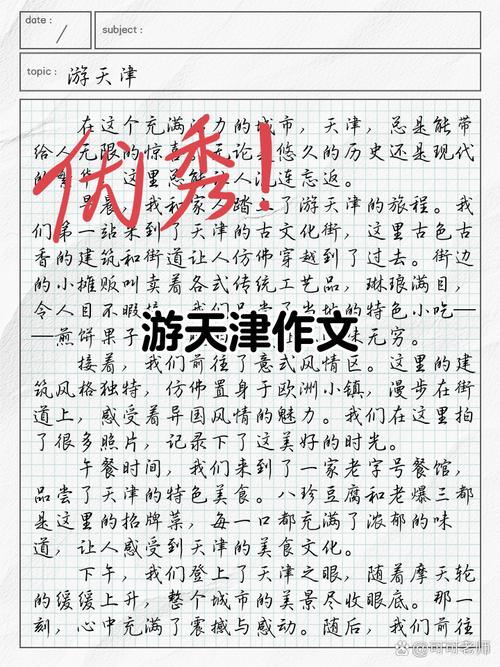 date：
subject：
topic： 游天津
在这个充满活力的城市，天津，总是能带
给人无限的惊喜。无论是悠久的历史还是现代
的繁华，这里总能让人流连忘返。
早晨，我和家人踏上了游天津的旅程。我
们第一站来到了天津的古文化街，这里古色古
香的建筑和街道让人仿佛穿越到了过去。街边
的小摊贩叫卖着各式传统工艺品，琳琅满目，
令人目不暇接。我们品尝了当地的特色小吃—
—煎饼果子 味无穷。
接着，我们前往了意式风情区。这里的建
筑风格独特，仿佛置身于欧洲小镇，漫步在街
道上，感受着异国风情的魅力。我们在这里拍
了很多照片，记录下了这美好的时光。
午餐时间，我们来到了一家老字号餐馆，
品尝了天津的特色美食。八珍豆腐和老爆三都
是这里的招牌菜，每一口都充满了浓郁的味
道，让人感受到天津的美食文化。
下午，我们登上了天津之眼，随着摩天轮
的缓缓上升，整个城市的美景尽收眼底。那一
刻，心中充满了震撼与感动。随后，我们前往
优秀！
游天津作文
@可可老师